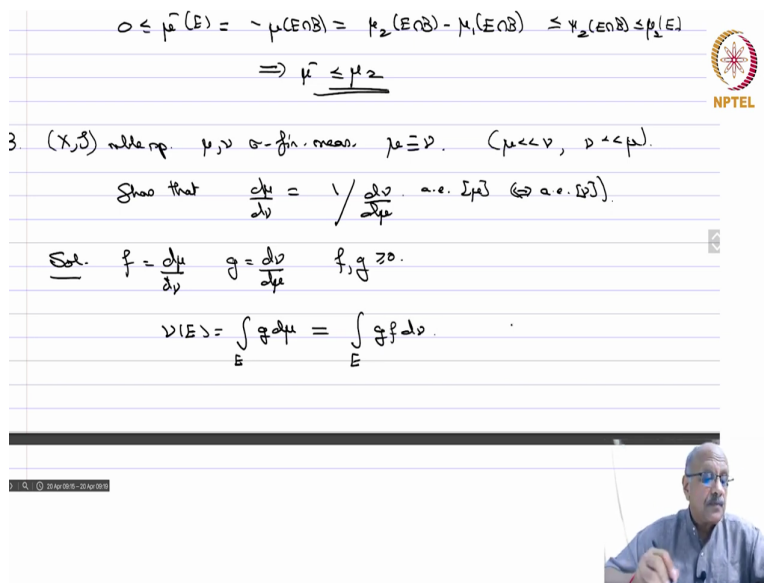 0 ≤ μ⁻(E) = -μ(E∩B) = μ₂(E∩B) - μ₁(E∩B) ≤ μ₂(E∩B) ≤ μ₂(E)
⟹ μ⁻ ≤ μ₂
NPTEL
3. (X,S) mble sp. μ,ν σ-fin. meas. μ ≡ ν. (μ<<ν, ν<<μ).
Show that dμ/dν = 1/dν/dμ a.e. [μ] (⇔ a.e. [ν]).
Sol. f = dμ/dν g = dν/dμ f,g ≥0.
ν(E) = ∫_E g dμ = ∫_E gf dν.
20 Apr 09:15 – 20 Apr 09:19